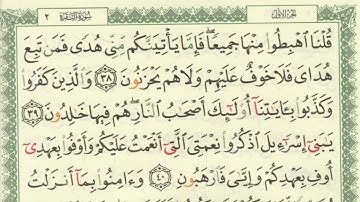 الجزء الأول سورة البقرة ٢
قُلْنَا ٱهْبِطُوا۟ مِنْهَا جَمِيعًا ۖ فَإِمَّا يَأْتِيَنَّكُم مِّنِّى هُدًى فَمَن تَبِعَ
هُدَاىَ فَلَا خَوْفٌ عَلَيْهِمْ وَلَا هُمْ يَحْزَنُونَ ٣٨ وَٱلَّذِينَ كَفَرُوا۟
وَكَذَّبُوا۟ بِـَٔايَـٰتِنَآ أُو۟لَـٰٓئِكَ أَصْحَـٰبُ ٱلنَّارِ ۖ هُمْ فِيهَا خَـٰلِدُونَ ٣٩
يَـٰبَنِىٓ إِسْرَٰٓءِيلَ ٱذْكُرُوا۟ نِعْمَتِىَ ٱلَّتِىٓ أَنْعَمْتُ عَلَيْكُمْ وَأَوْفُوا۟ بِعَهْدِىٓ
أُوفِ بِعَهْدِكُمْ وَإِيَّـٰىَ فَٱرْهَبُونِ ٤٠ وَءَامِنُوا۟ بِمَآ أَنزَلْتُ